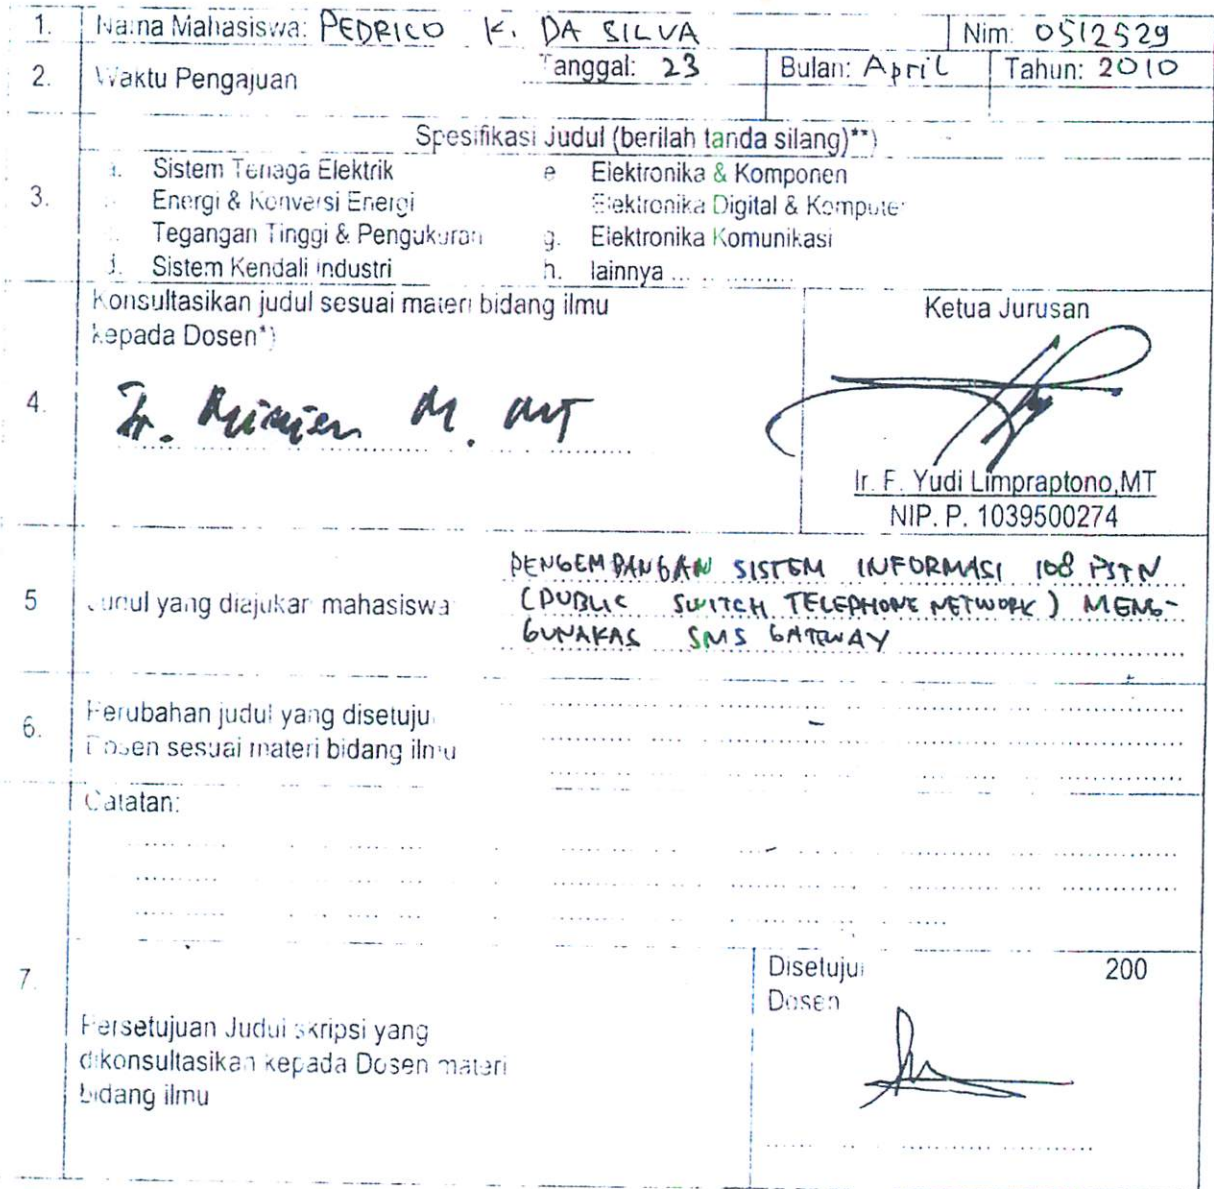 1. Nama Mahasiswa: PEDRICO K. DA SILVA Nim: 0512529
2. Waktu Pengajuan Tanggal: 23 Bulan: April Tahun: 2010
Spesifikasi Judul (berilah tanda silang)**)
3.
a. Sistem Tenaga Elektrik e Elektronika & Komponen
Energi & Konversi Energi Elektronika Digital & Komputer
Tegangan Tinggi & Pengukuran g. Elektronika Komunikasi
d. Sistem Kendali Industri h. lainnya ... ............
4.
Konsultasikan judul sesuai materi bidang ilmu
kepada Dosen*)
Ir. M. MT
Ketua Jurusan
Ir. F. Yudi Limpraptono,MT
NIP. P. 1039500274
5 Judul yang diajukan mahasiswa
PENGEMBANGAN SISTEM INFORMASI 108 PSTN
(PUBLIC SWITCH TELEPHONE NETWORK) MENG-
GUNAKAS SMS GATEWAY
6.
Perubahan judul yang disetujui
Dosen sesuai materi bidang ilmu
Catatan:
7.
Persetujuan Judul skripsi yang
dikonsultasikan kepada Dosen materi
bidang ilmu
Disetujui 200
Dosen